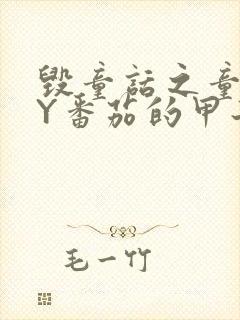 毁童话之童
Y番茄的甲
毛一竹